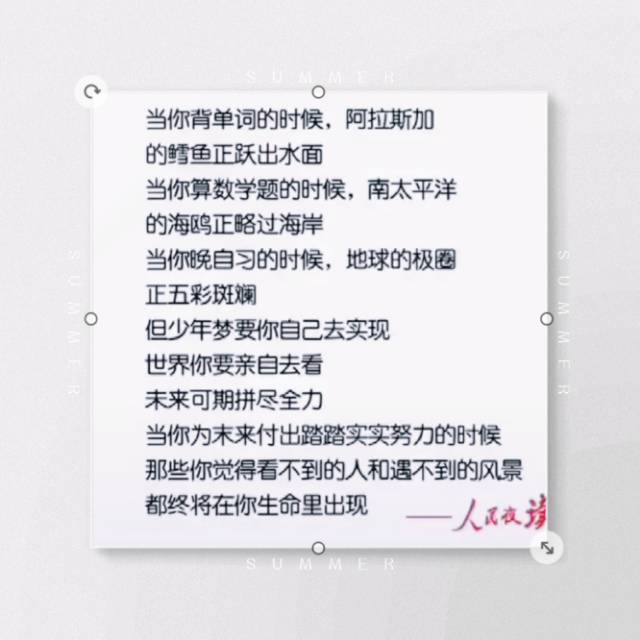 SUMMER
当你背单词的时候，阿拉斯加
的鳕鱼正跃出水面
当你算数学题的时候，南太平洋
的海鸥正略过海岸
当你晚自习的时候，地球的极圈
正五彩斑斓
但少年梦要你自己去实现
世界你要亲自去看
未来可期拼尽全力
当你为未来付出踏踏实实努力的时候
那些你觉得看不到的人和遇不到的风景
都终将在你生命里出现
——人民夜读
SUMMER
SUMMER
SUMMER